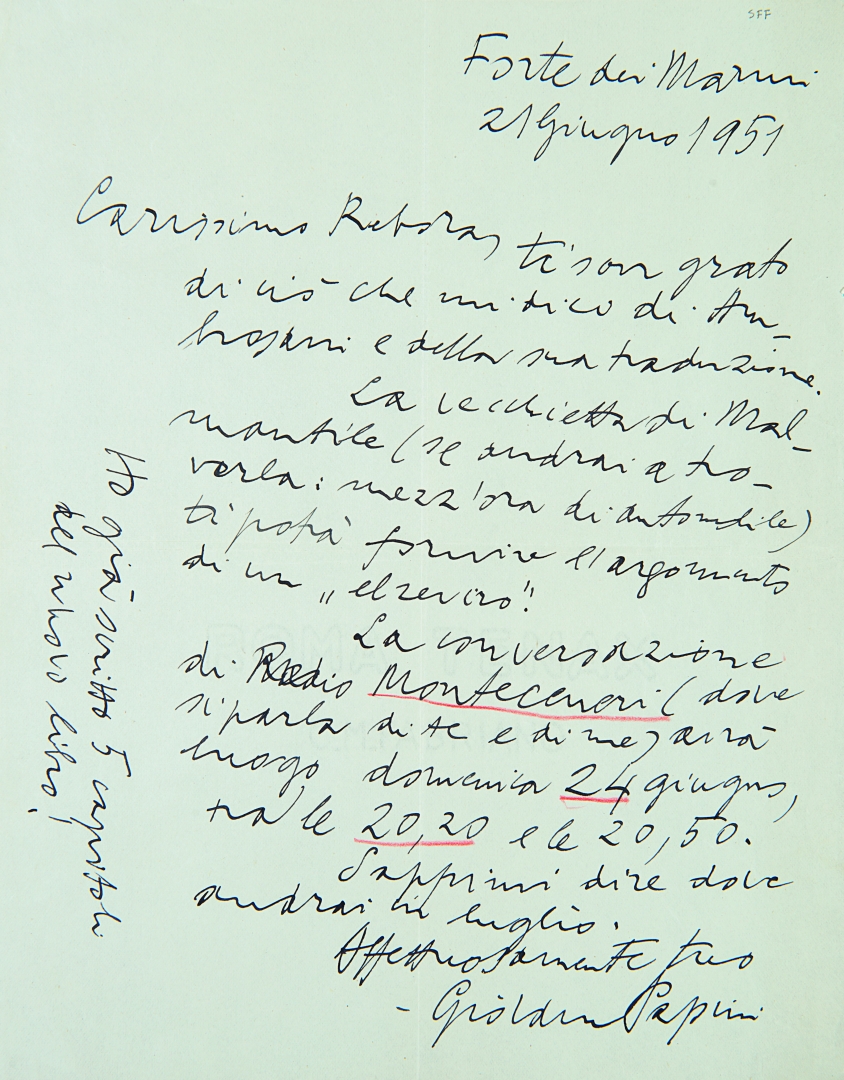 SFF
Forte dei Marmi
21 Giugno 1951
Carissimo Rebora, ti son grato
di ciò che mi dici di Am-
brosani e della sua traduzione.
La vecchietta di Mal-
mantile (se andrai a tro-
varla: mezz'ora di automobile)
ti potrà fornire l'argomento
di un „elzeviro".
La conversazione
di Radio Monteceneri (dove
si parla di te e di me) avrà
luogo domenica 24 giugno,
tra le 20,20 e le 20,50.
Sappimi dire dove
andrai in luglio.
Affettuosamente tuo
Papini
Ho già scritto 5 capitoli
del nuovo libro!